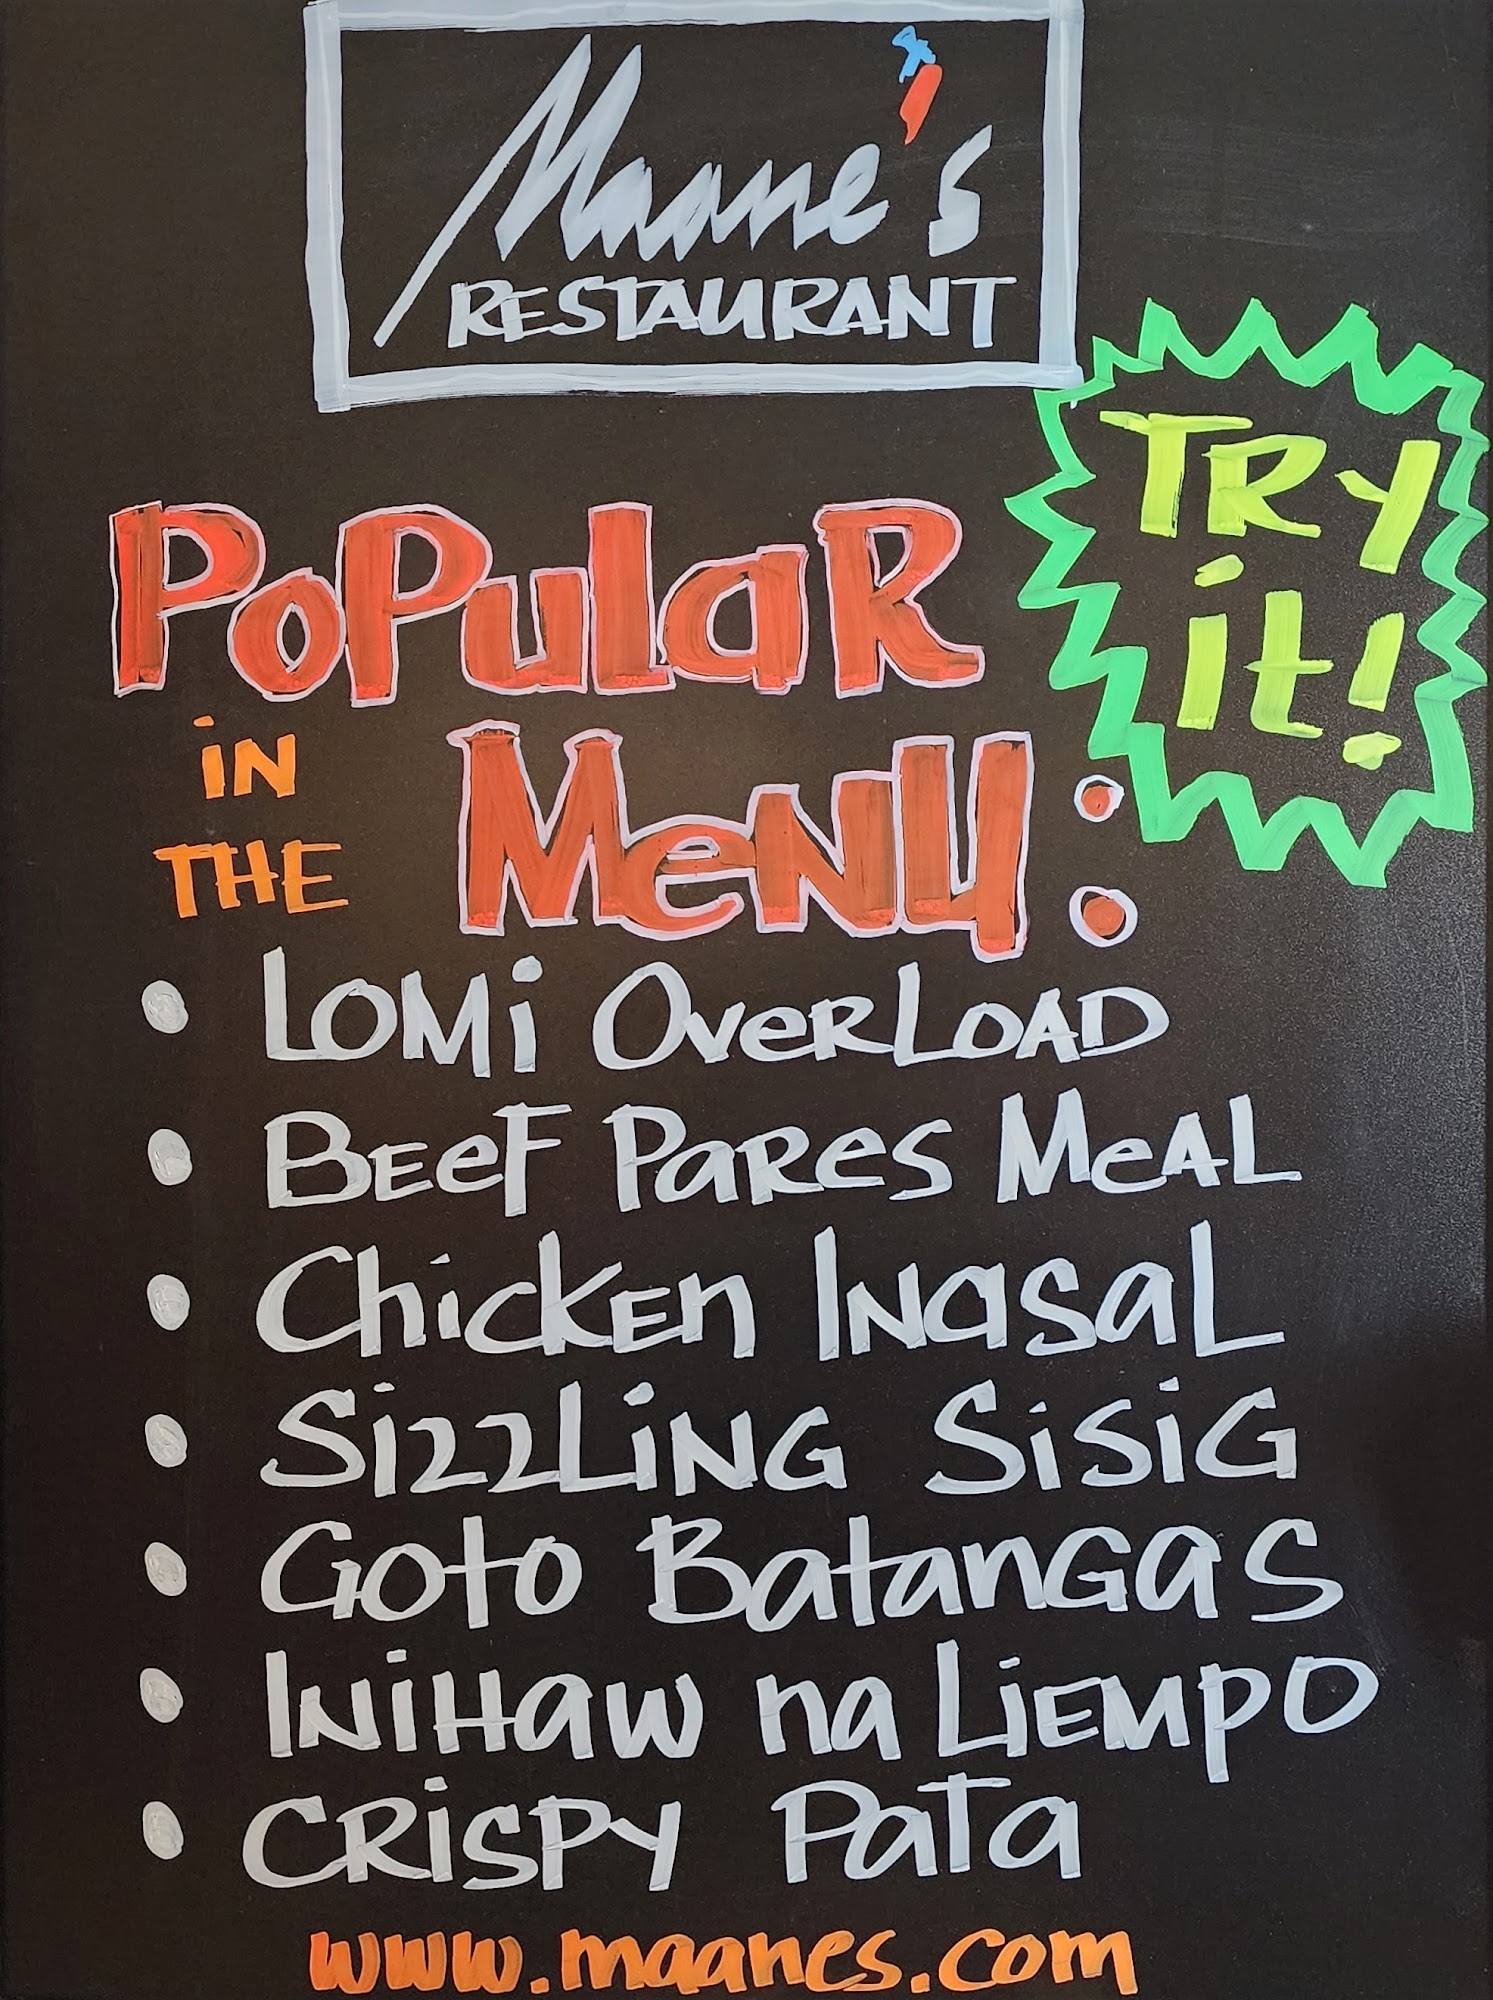 Maane's
RESTAURANT
TRY
it!
POPULaR
iN
THE
MeNU:
• LOMi OverLOAD
• BEeF PaRes MeAL
• ChicKEn INasaL
• SizzLiNG SiSiG
• Goto BatanGaS
• INiHaW na LiEMpO
• CRiSPY PaTa
www.maanes.com